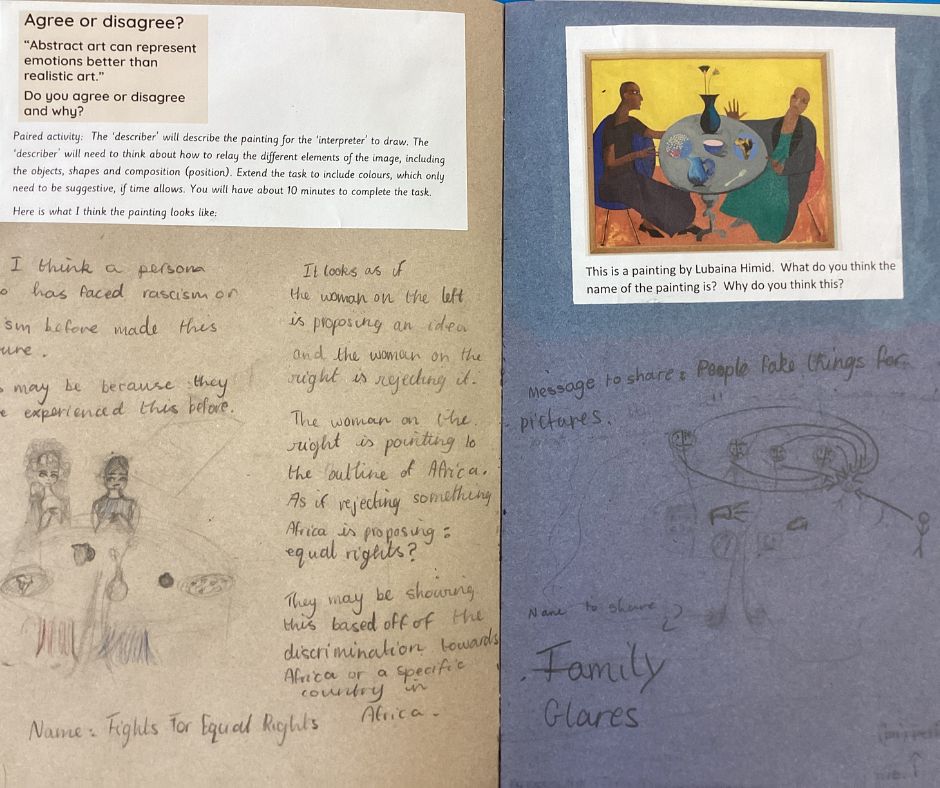 Agree or disagree?
“Abstract art can represent
emotions better than
realistic art.”
Do you agree or disagree
and why?
Paired activity: The ‘describer’ will describe the painting for the ‘interpreter’ to draw. The
‘describer’ will need to think about how to relay the different elements of the image, including
the objects, shapes and composition (position). Extend the task to include colours, which only
need to be suggestive, if time allows. You will have about 10 minutes to complete the task.
Here is what I think the painting looks like:
I think a persona
has faced rascism or
ism before made this
ure.
may be because they
experienced this before.
It looks as if
the woman on the left
is proposing an idea
and the woman on the
right is rejecting it.
The woman on the
right is pointing to
the outline of Africa.
As if rejecting something
Africa is proposing:
equal rights?
They may be showing
this based off of the
discrimination towards
Africa or a specific
country in
Africa.
Name: Fights For Equal Rights
This is a painting by Lubaina Himid. What do you think the
name of the painting is? Why do you think this?
Message to share: People fake things for
pictures.
Name to share
Family
Glares